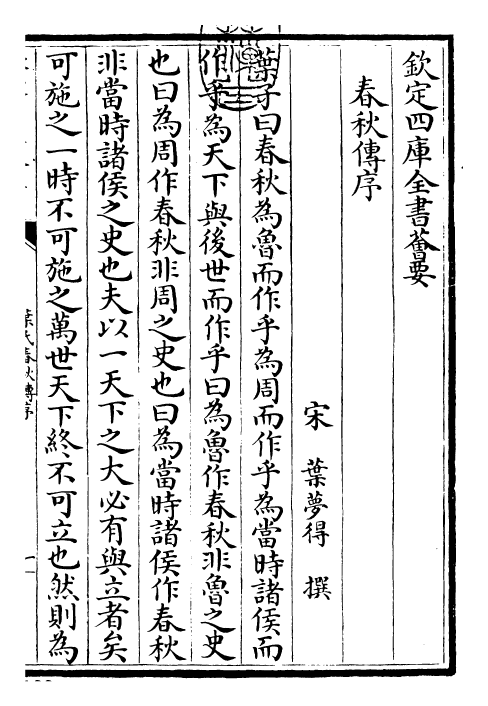 欽定四庫全書薈要
春秋傳序
宋 葉夢得 撰
葉子曰春秋為魯而作乎為周而作乎為當時諸侯而
作乎為天下與後世而作乎曰為魯作春秋非魯之史
也曰為周作春秋非周之史也曰為當時諸侯作春秋
非當時諸侯之史也夫以一天下之大必有與立者矣
可施之一時不可施之萬世天下終不可立也然則為
葉氏春秋傳序
一